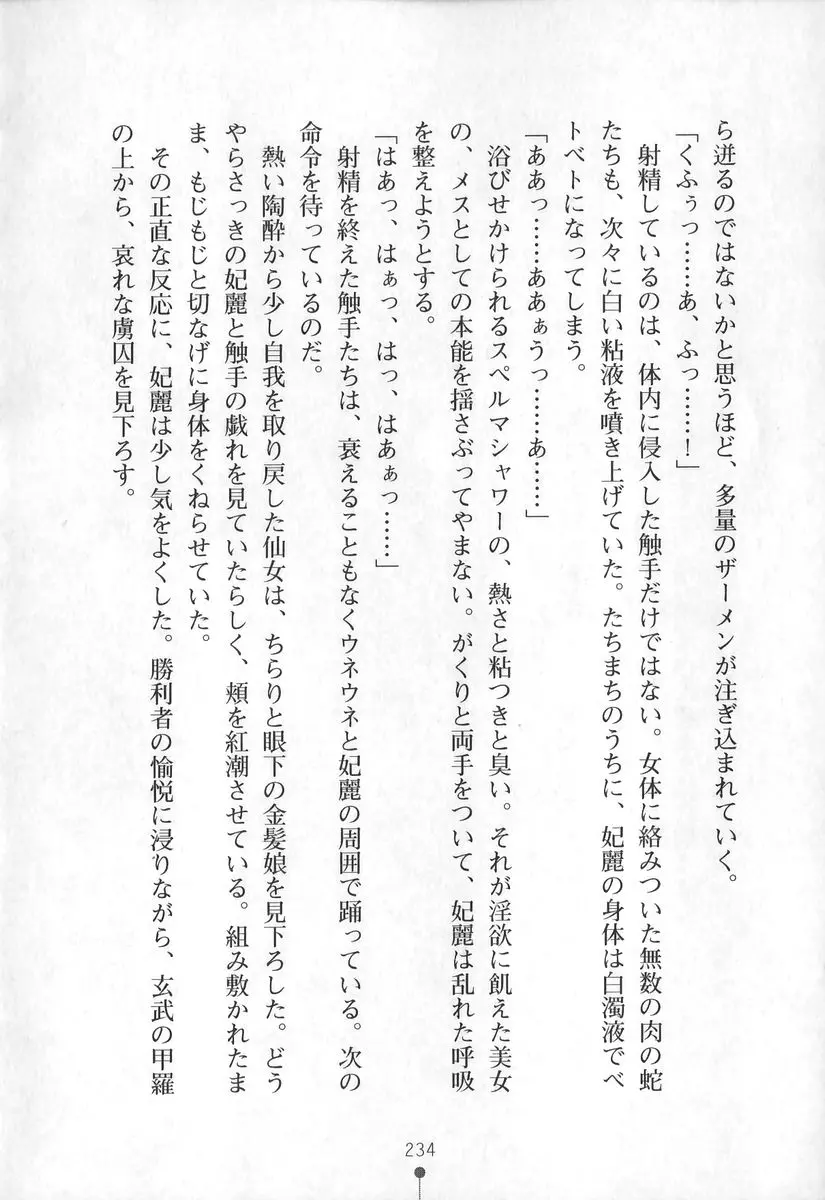 ら迸るのではないかと思うほど、多量のザーメンが注ぎ込まれていく。
「くふぅっ……あ、ふっ……！」
射精しているのは、体内に侵入した触手だけではない。女体に絡みついた無数の肉の蛇
たちも、次々に白い粘液を噴き上げていた。たちまちのうちに、妃麗の身体は白濁液でベ
トベトになってしまう。
「ああっ……あぁぅっ……あ……」
浴びせかけられるスペルマシャワーの、熱さと粘つきと臭い。それが淫欲に飢えた美女
の、メスとしての本能を揺さぶってやまない。がくりと両手をついて、妃麗は乱れた呼吸
を整えようとする。
「はあっ、はぁっ、はっ、はあぁっ……」
射精を終えた触手たちは、衰えることもなくウネウネと妃麗の周囲で踊っている。次の
命令を待っているのだ。
熱い陶酔から少し自我を取り戻した仙女は、ちらりと眼下の金髪娘を見下ろした。どう
やらさっきの妃麗と触手の戯れを見ていたらしく、頬を紅潮させている。組み敷かれたま
ま、もじもじと切なげに身体をくねらせていた。
その正直な反応に、妃麗は少し気をよくした。勝利者の愉悦に浸りながら、玄武の甲羅
の上から、哀れな虜囚を見下ろす。
234